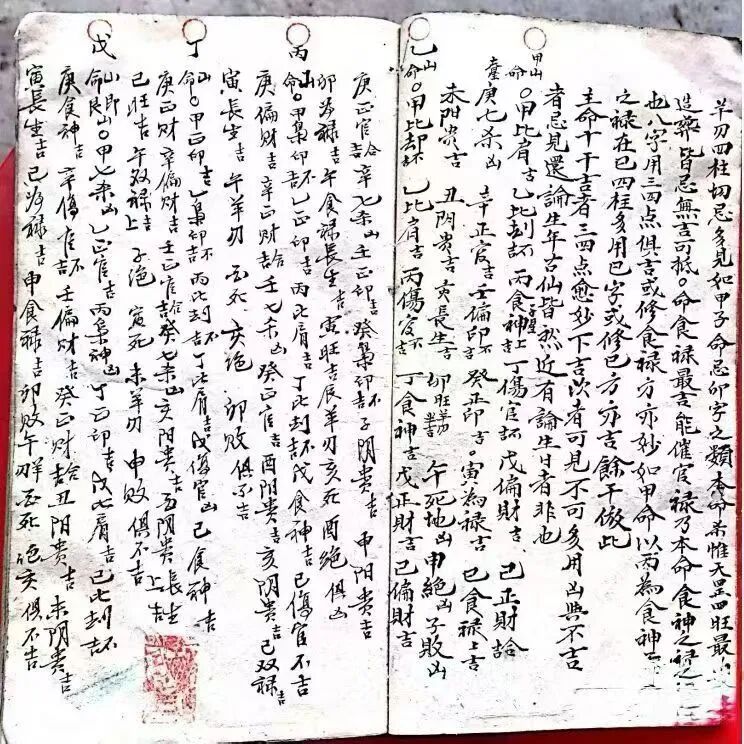 羊刃四柱切忌多見如甲子命忌卯字之類本命煞惟天罡四旺最
造葬皆忌無吉可抵。命食祿最吉能催官祿乃本命食神之祿
也八字用三四点俱吉或修食祿方亦妙如甲命以丙為食神
之祿在巳四柱多用巳字或修巳方亦吉餘干倣此
主命十干吉者三四点愈妙下吉次者可見不可多用凶與不吉
者忌見還論生年古仙皆然近有論生日者非也
甲山命。甲比肩吉乙比刦不丙食神上吉丁傷官不戊偏財吉、己正財
庚七杀凶 辛正官吉壬偏印不癸正印吉。寅為祿吉 巳食祿上吉
未阳贵吉 丑阴贵吉亥長生吉卯旺羊刃 午死地凶申絕凶子敗凶
乙山命。甲比刦不 乙比肩吉丙傷官不吉 丁食神吉戊正財吉己偏財吉
庚正官吉辛七杀凶壬正印吉癸梟印不 子阴贵吉 申阳贵吉
卯為祿吉午食祿長生吉寅旺吉辰羊刃亥死酉絕俱凶
丙山命。甲梟印不乙正印吉丙比肩吉丁比刦不戊食神吉己傷官不吉
庚偏財吉辛正財吉壬七杀凶癸正官吉酉阴贵吉亥阴贵吉己双祿吉
寅長生吉 午羊刃 丑死、亥絕 卯敗 俱不吉
丁山命。甲正印吉乙梟印不丙比刦不丁比肩吉戊傷官凶己食神吉
庚正財辛偏財吉壬正官吉癸七杀凶亥阳贵吉酉阴贵長生上吉
巳旺吉午双祿上吉子絕 寅死未羊刃 申敗俱不吉
戊山即艮山命。甲七杀凶乙正官吉丙梟神凶丁正印吉戊比肩吉己比刦不
庚食神吉辛傷官不壬偏財吉癸正財吉丑阳贵吉未阴贵吉
寅長生吉巳為祿吉申食祿吉卯敗午羊刃酉死絕亥俱不吉